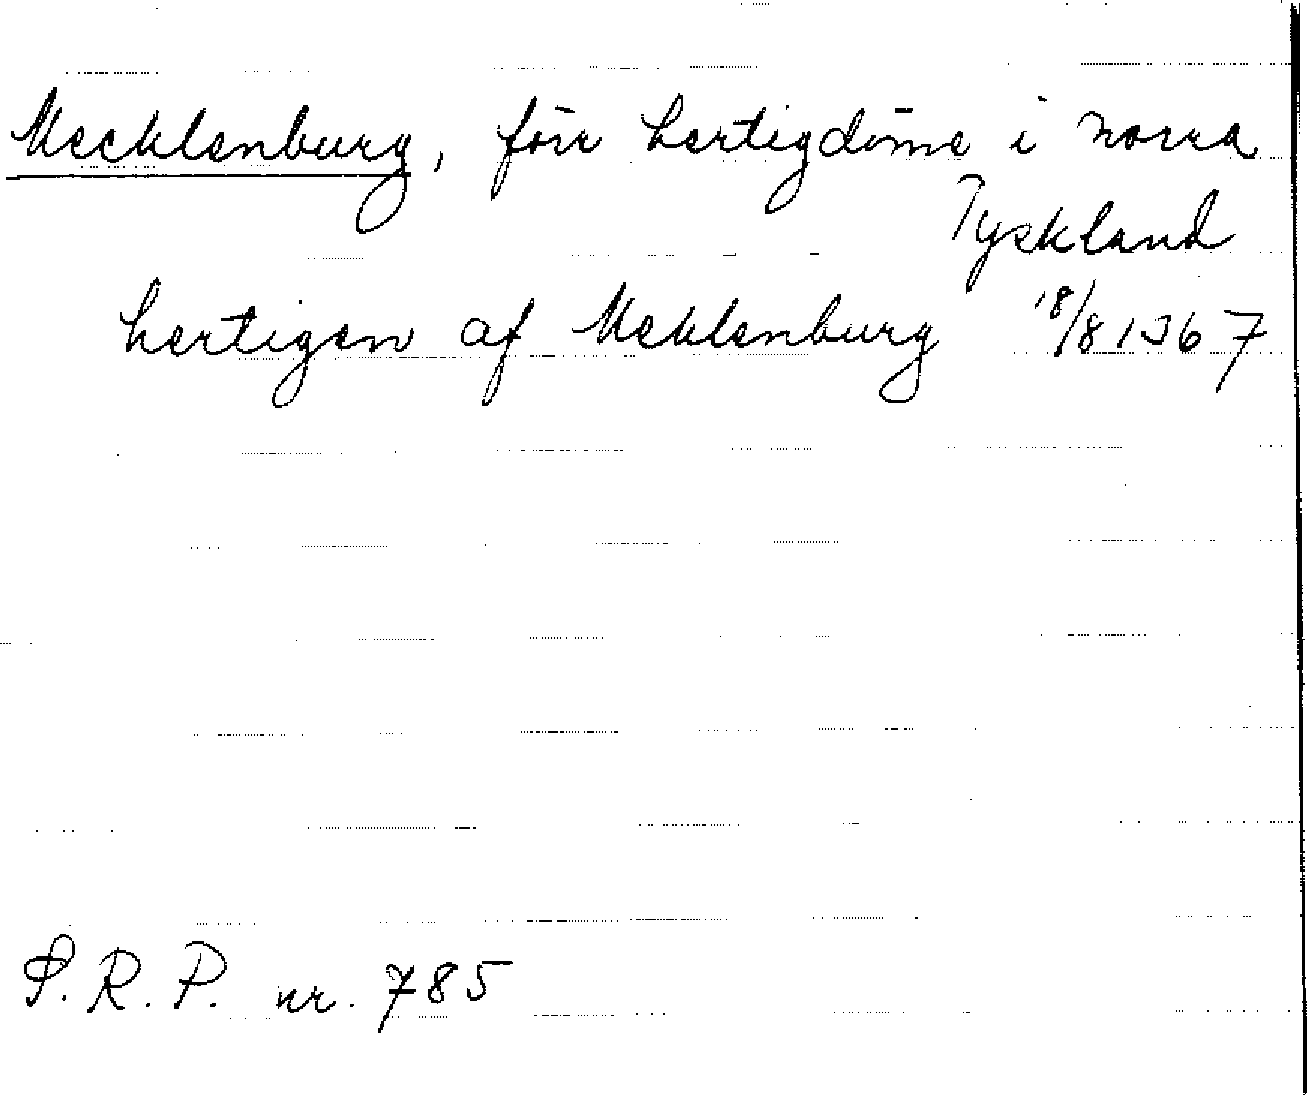 Mecklenburg, förr hertigdöme i norra
Tyskland
hertigen af Meklenburg 18/8 1367
S.R.P. nr. 785